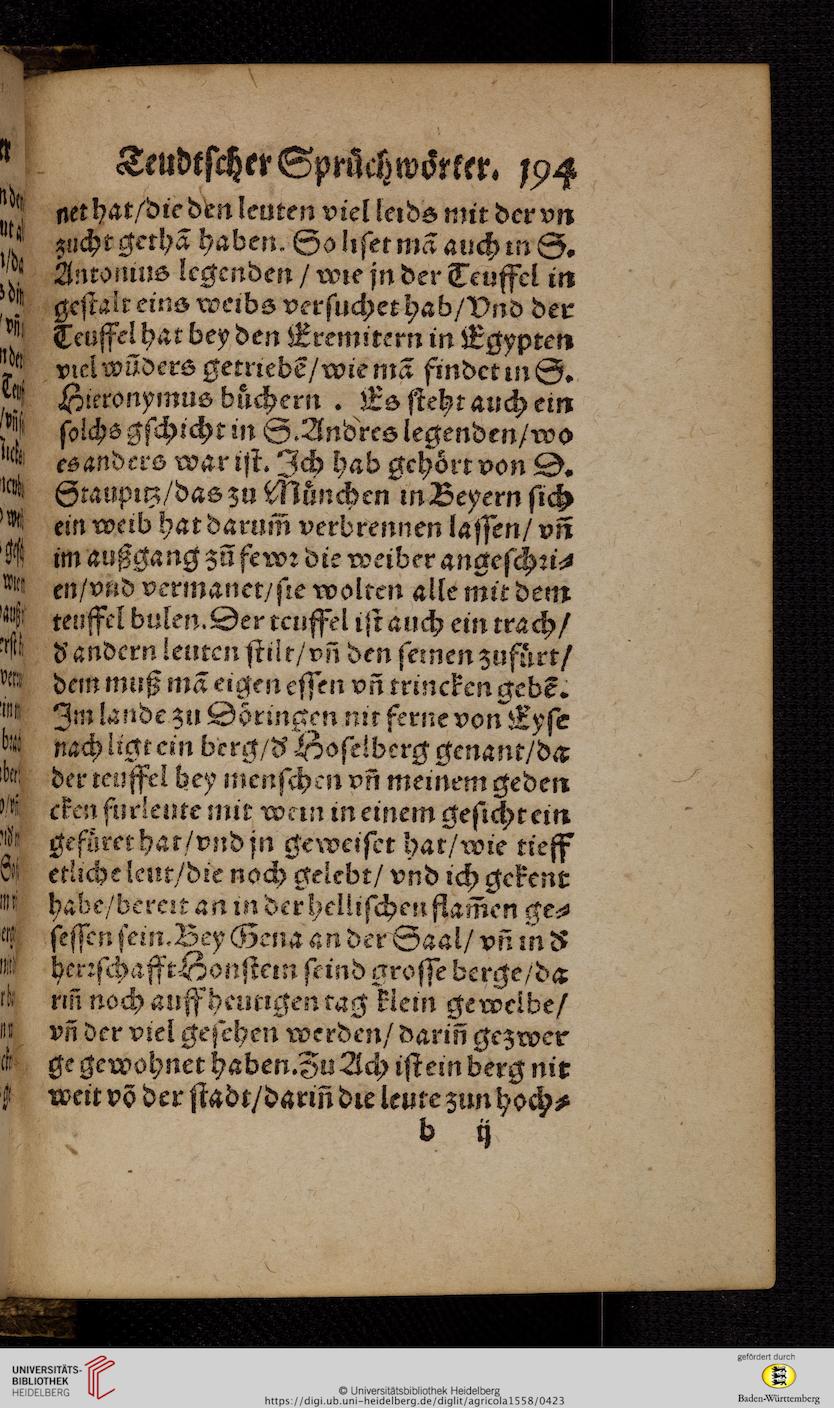 Teudtscher Sprüchwörter. 194
net hat/die den leuten viel leids mit der vn
zucht gethā haben. So liset mā auch in S.
Antonius legenden / wie jn der Teuffel in
gestalt eins weibs versuchet hab/Vnd der
Teuffel hat bey den Eremitern in Egypten
viel wūders getriebē/wie mā findet in S.
Hieronymus büchern . Es steht auch ein
solchs gschicht in S.Andres legenden/wo
es anders war ist. Ich hab gehört von D.
Staupitz/das zu München in Beyern sich
ein weib hat darum̄ verbrennen lassen/ vn̄
im außgang zū fewr die weiber angeschri⸗
en/vnd vermanet/sie wolten alle mit dem
teuffel bulen.Der teuffel ist auch ein trach/
d̕ andern leuten stilt/vn̄ den seinen zufürt/
dem muß mā eigen essen vn̄ trincken gebē.
Im lande zu Döringen nit ferne von Eyse
nach ligt ein berg/d̕ Hoselberg genant/da
der teuffel bey menschen vn̄ meinem geden
cken furleute mit wein in einem gesicht ein
gefüret hat/vnd jn geweiset hat/wie tieff
etliche leut/die noch gelebt/ vnd ich gekent
habe/bereit an in der hellischen flam̄en ge⸗
sessen sein.Bey Gena an der Saal/ vn̄ in d̕
herrschafft Honstein seind grosse berge/da
rin̄ noch auff heutigen tag klein gewelbe/
vn̄ der viel gesehen werden/ darin̄ gezwer
ge gewohnet haben.Zu Ach ist ein berg nit
weit vō der stadt/darin̄ die leute zun hoch⸗
b ij
UNIVERSITÄTS-
BIBLIOTHEK
HEIDELBERG
© Universitätsbibliothek Heidelberg
https://digi.ub.uni-heidelberg.de/diglit/agricola1558/0423
gefördert durch
Baden-Württemberg